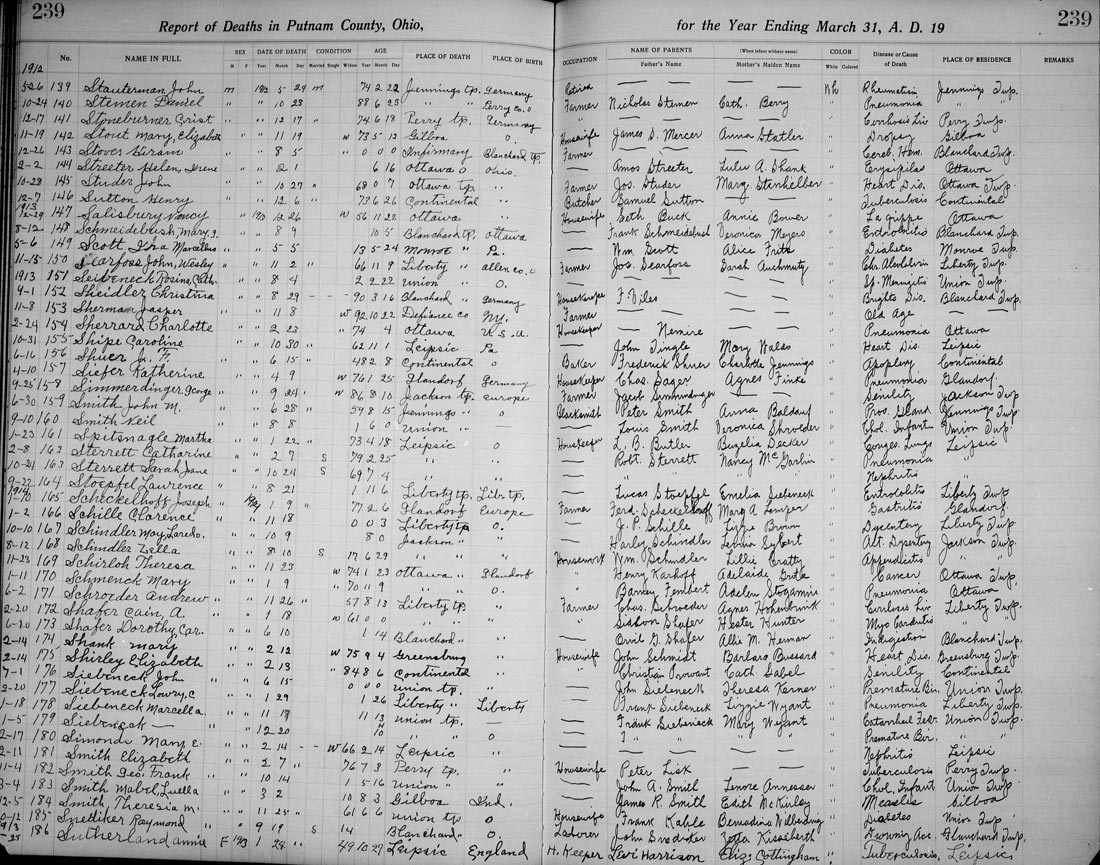 239
Report of Deaths in Putnam County, Ohio,
for the Year Ending March 31, A. D. 19
239
No. NAME IN FULL SEX DATE OF DEATH CONDITION AGE PLACE OF DEATH PLACE OF BIRTH OCCUPATION NAME OF PARENTS (When infant without name) COLOR Disease or Cause of Death PLACE OF RESIDENCE REMARKS
M F Year Month Day Married Single Widow Year Month Day Father's Name Mother's Maiden Name White Colored
1912
5-26 139 Stauterman John m 5 24 m 74 2 22 Jennings tp. Germany Rheumatism Jennings Twp.
10-24 140 Stemen Daniel " 10 23 88 6 23 " " Perry co. o Farmer Nicholas Stemen Cath. Berry Pneumonia " "
12-17 141 Stoneburner Crist " 12 17 74 6 18 Perry tp. Germany " Cirrhosis Liv Perry Twp.
11-19 142 Stout Mary, Elizabeth " 11 19 w 73 5 12 Gilboa O. Housewife James S. Mercer Anna Statler Dropsy Gilboa
12-26 143 Stover Hiram 8 5 0 0 0 Infirmary Blanchard tp. Farmer Cereb. Hem. Blanchard Twp.
2-2 144 Streeter Helen, Irene 2 1 6 16 Ottawa O Ohio. Amos Streeter Lulu A. Shank Erysipilas Ottawa
10-28 145 Studer John 10 27 69 0 7 Ottawa tp. " Farmer Jos. Studer Heart Dis. Ottawa Twp.
12-7 146 Sutton Henry 12 6 73 6 26 Continental " Butcher Samuel Sutton Tuberculosis Continental
1913
12-29 147 Salisbury Nancy 12 26 W 56 11 22 Ottawa " Housewife Seth Buck Annie Bower La Grippe Ottawa
8-12 148 Schmeidebush, Mary, J. 8 9 10 5 Blanchard tp. Ottawa Frank Schmeidebush Veronica Meyers Blanchard Twp.
5-6 149 Scott Ira Marcellus 5 5 13 5 24 Monroe " Pa. Wm Scott Alice Frits Diabetes Monroe Twp.
11-15 150 Scarfoss John, Wesley 11 2 66 11 9 Liberty " Allen co. o Farmer Jos. Scarfoss Sarah Auchmuty Liberty Twp.
1913 151 Seibeneck Rosina, Cath. 8 4 2 2 22 Union " O. Sp. Meningitis Union Twp.
9-1 152 Sheidler Christina 8 29 90 3 16 Blanchard " Germany Housekeeper F. Viles Brights Dis. Blanchard Twp.
11-8 153 Sherman Jasper 11 8 W 92 10 22 Defiance co Ny. Farmer Old Age
2-24 154 Sherrard Charlotte 2 23 74 4 Ottawa U.S.A. Housekeeper Nemire Pneumonia Ottawa
10-31 155 Shipe Caroline 10 30 62 11 1 Leipsic Pa John Tingle Mary Wales Heart Dis. Leipsic
6-16 156 Shuer J. F. 6 15 48 2 8 Continental O Baker Frederick Shuer Charlotte Jennings Apoplexy Continental
4-10 157 Siefer Katherine 4 9 W 76 1 25 Glandorf Germany Housekeeper Chas. Sager Agnes Finke Pneumonia Glandorf.
9-25 158 Simmerdinger, George 9 24 W 86 8 10 Jackson tp. Europe Farmer Jacob Simmerdinger Senility Jackson Twp.
6-30 159 Smith John M. 6 28 59 8 15 Jennings " O Blacksmith Peter Smith Anna Baldauf Pros. Gland. Jennings Twp.
9-10 160 Smith Neil 8 8 1 6 0 Union " Louis Smith Veronica Shrolder Chol. Infantum Union Twp.
1-23 161 Spitsnagle Martha 1 22 73 4 18 Leipsic O Housekeeper L. B. Butler Decker Conges. Lungs Leipsic
2-8 162 Sterrett Catharine 2 7 S 79 2 25 " " Robt. Sterrett Nancy McGarlin Pneumonia "
10-24 163 Sterrett Sarah Jane 10 24 S 69 7 4 " " " " Nephritis "
9-22 164 Stoepfel Lawrence 8 21 1 11 6 Liberty tp. Lib. tp. Lucas Stoepfel Emelia Siebeneck Liberty Twp
1914
1-10 165 Scheckelhoff Joseph 1 9 77 2 6 Glandorf Europe Farmer Ferd. Scheckelhoff Gastritis Glandorf.
1-2 166 Schille Clarence 11 18 0 0 3 Liberty tp O. J. P. Schille Lizzie Brown Dysentery Liberty Twp.
10-10 167 Schindler May, Laredo. 10 9 8 0 Jackson " " Harley Schindler Alt. Dysentery Jackson Twp.
8-12 168 Schindler Zella 8 10 S 17 6 29 " Housework Wm. Schindler Lillie Cratty Appendicitis " "
11-23 169 Schirloh Theresa 11 23 W 74 1 23 Ottawa " Glandorf " Henry Karhoff Adelaide Cancer Ottawa Twp.
1-11 170 Schmenck Mary 1 9 70 11 9 " " Barney Pneumonia Ottawa
6-2 171 Schroeder Andrew 11 26 57 8 13 Liberty tp. " Farmer Chas. Schroeder Agnes Cirrhosis Liv Liberty Twp.
2-20 172 Shafer Cain, A. 1 18 W 61 0 0 " " Hester Hunter Myo Carditis
6-20 173 Shafer Dorothy, Car. 6 10 1 4 Blanchard " Orvil G. Shafer Allie M. Herman Indigestion Blanchard Twp.
2-14 174 Shank Mary 2 12 W 75 9 4 Greensburg " Housewife John Schmidt Barbara Bussard Heart Dis. Greensburg Twp.
2-14 175 Shirley Elizabeth 2 13 84 8 6 Continental " Christian Prowant Cath. Sabel Senility Continental
7-1 176 Siebeneck John 6 15 0 0 0 Union tp. John Siebeneck Theresa Kerner Premature Bir. Union Twp.
2-20 177 Siebeneck Lowry, C 1 29 1 26 Liberty " Liberty Frank Siebeneck Lizzie Wyant Pneumonia Liberty "
1-18 178 Siebeneck Marcella. 11 19 11 13 Union tp. Frank Siebeneck Mary Wyant Catarrhal Feb. Union Twp.
1-5 179 Siebeneck 12 20 " " O " " Premature Bir. " "
2-17 180 Simonds Mary, E. 2 14 W 66 2 14 Leipsic " Nephritis Leipsic
2-11 181 Smith Elizabeth 2 7 76 7 3 Perry tp. " Housewife Peter Lisk Tuberculosis Perry Twp.
11-4 182 Smith Geo. Frank 10 14 1 5 16 Union " " John A. Smith Lenore Anneaser Chol. Infant. Union Twp
3-4 183 Smith Mabel, Luella 3 2 10 8 3 Gilboa Ind. James P. Smith Edith McKinley Measles Gilboa
12-5 184 Smith, Theresia M. 11 25 61 6 6 Union tp O Housewife Frank Kahle Bernadina Wilberding Diabetes Union Twp.
10-12 185 Snediker Raymond 9 19 S 14 Blanchard " O. Laborer John Snediker Zetta Kisseberth Drowning Acc. Blanchard Twp.
1913
186 Sutherland Annie F 1913 1 24 49 10 27 Leipsic England H. Keeper Levi Harrison Eliz. Cottingham Tuberculosis Leipsic